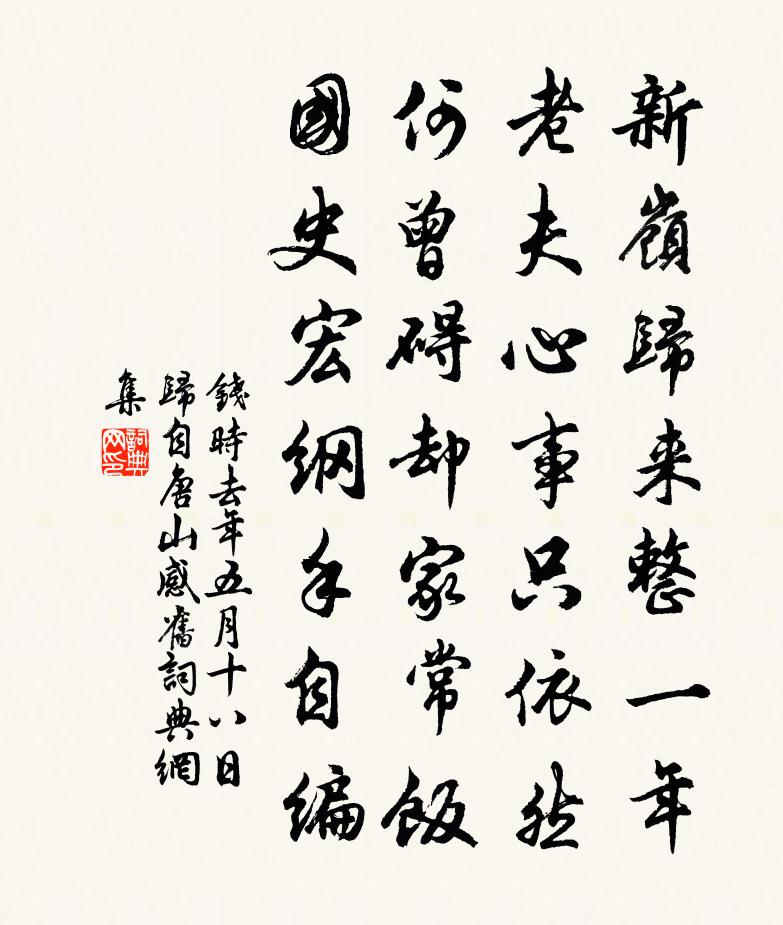 新嶺歸来整一年
老夫心事只依然
何曾碍却家常飯
國史宏綱手自編
錢時去年五月十八日
歸自唐山感舊詞典網
集
詞典網印